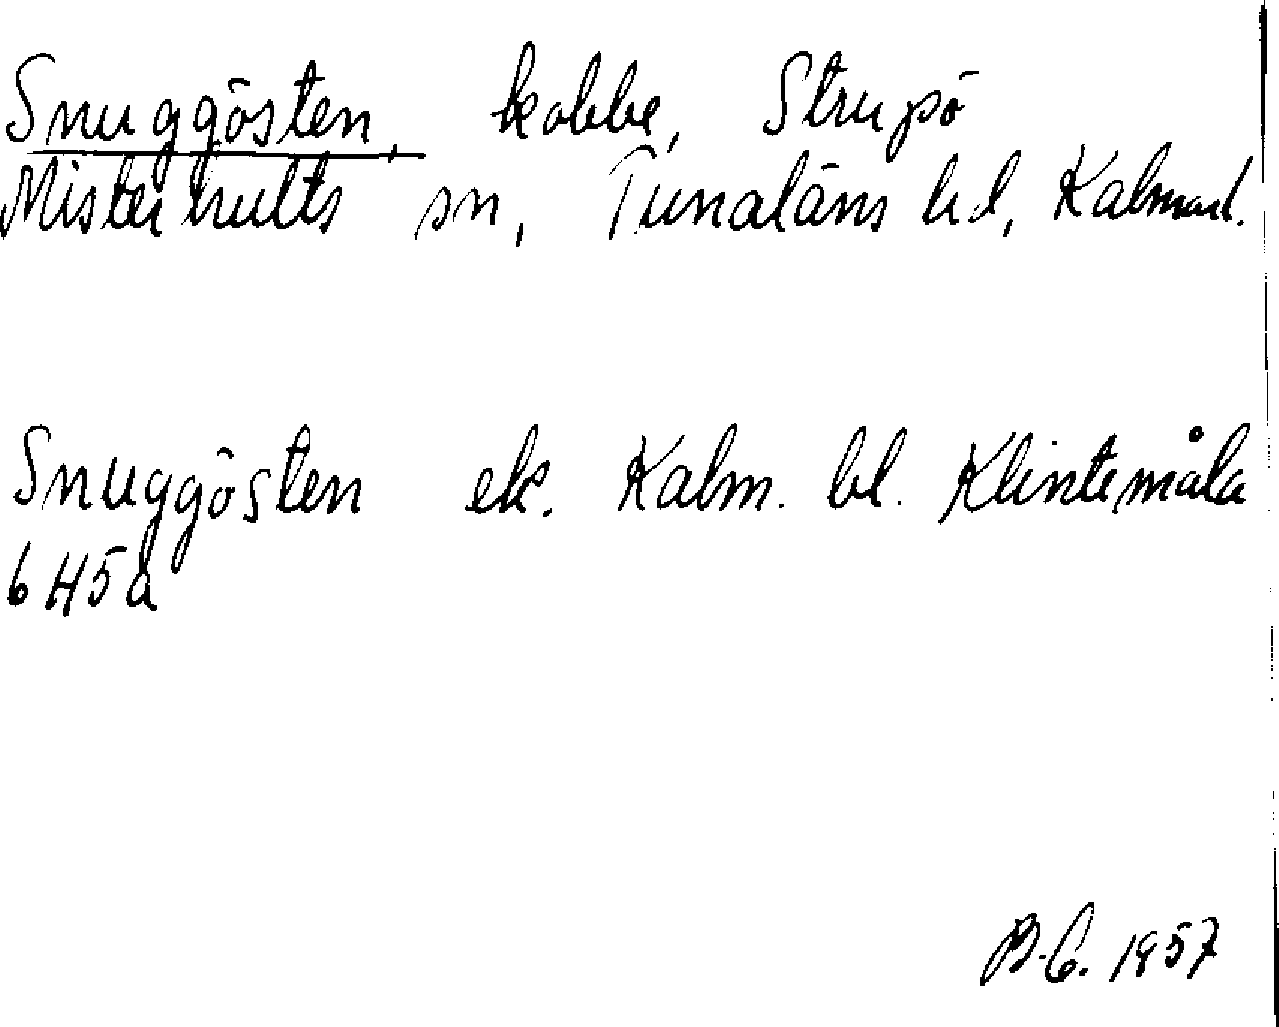 Snuggösten, kobbe, Strupö
Misterhults sn, Tunaläns hd, Kalmarl.
Snuggösten ek. Kalm. bl. Klintemåla
6H5a
B.G. 1957